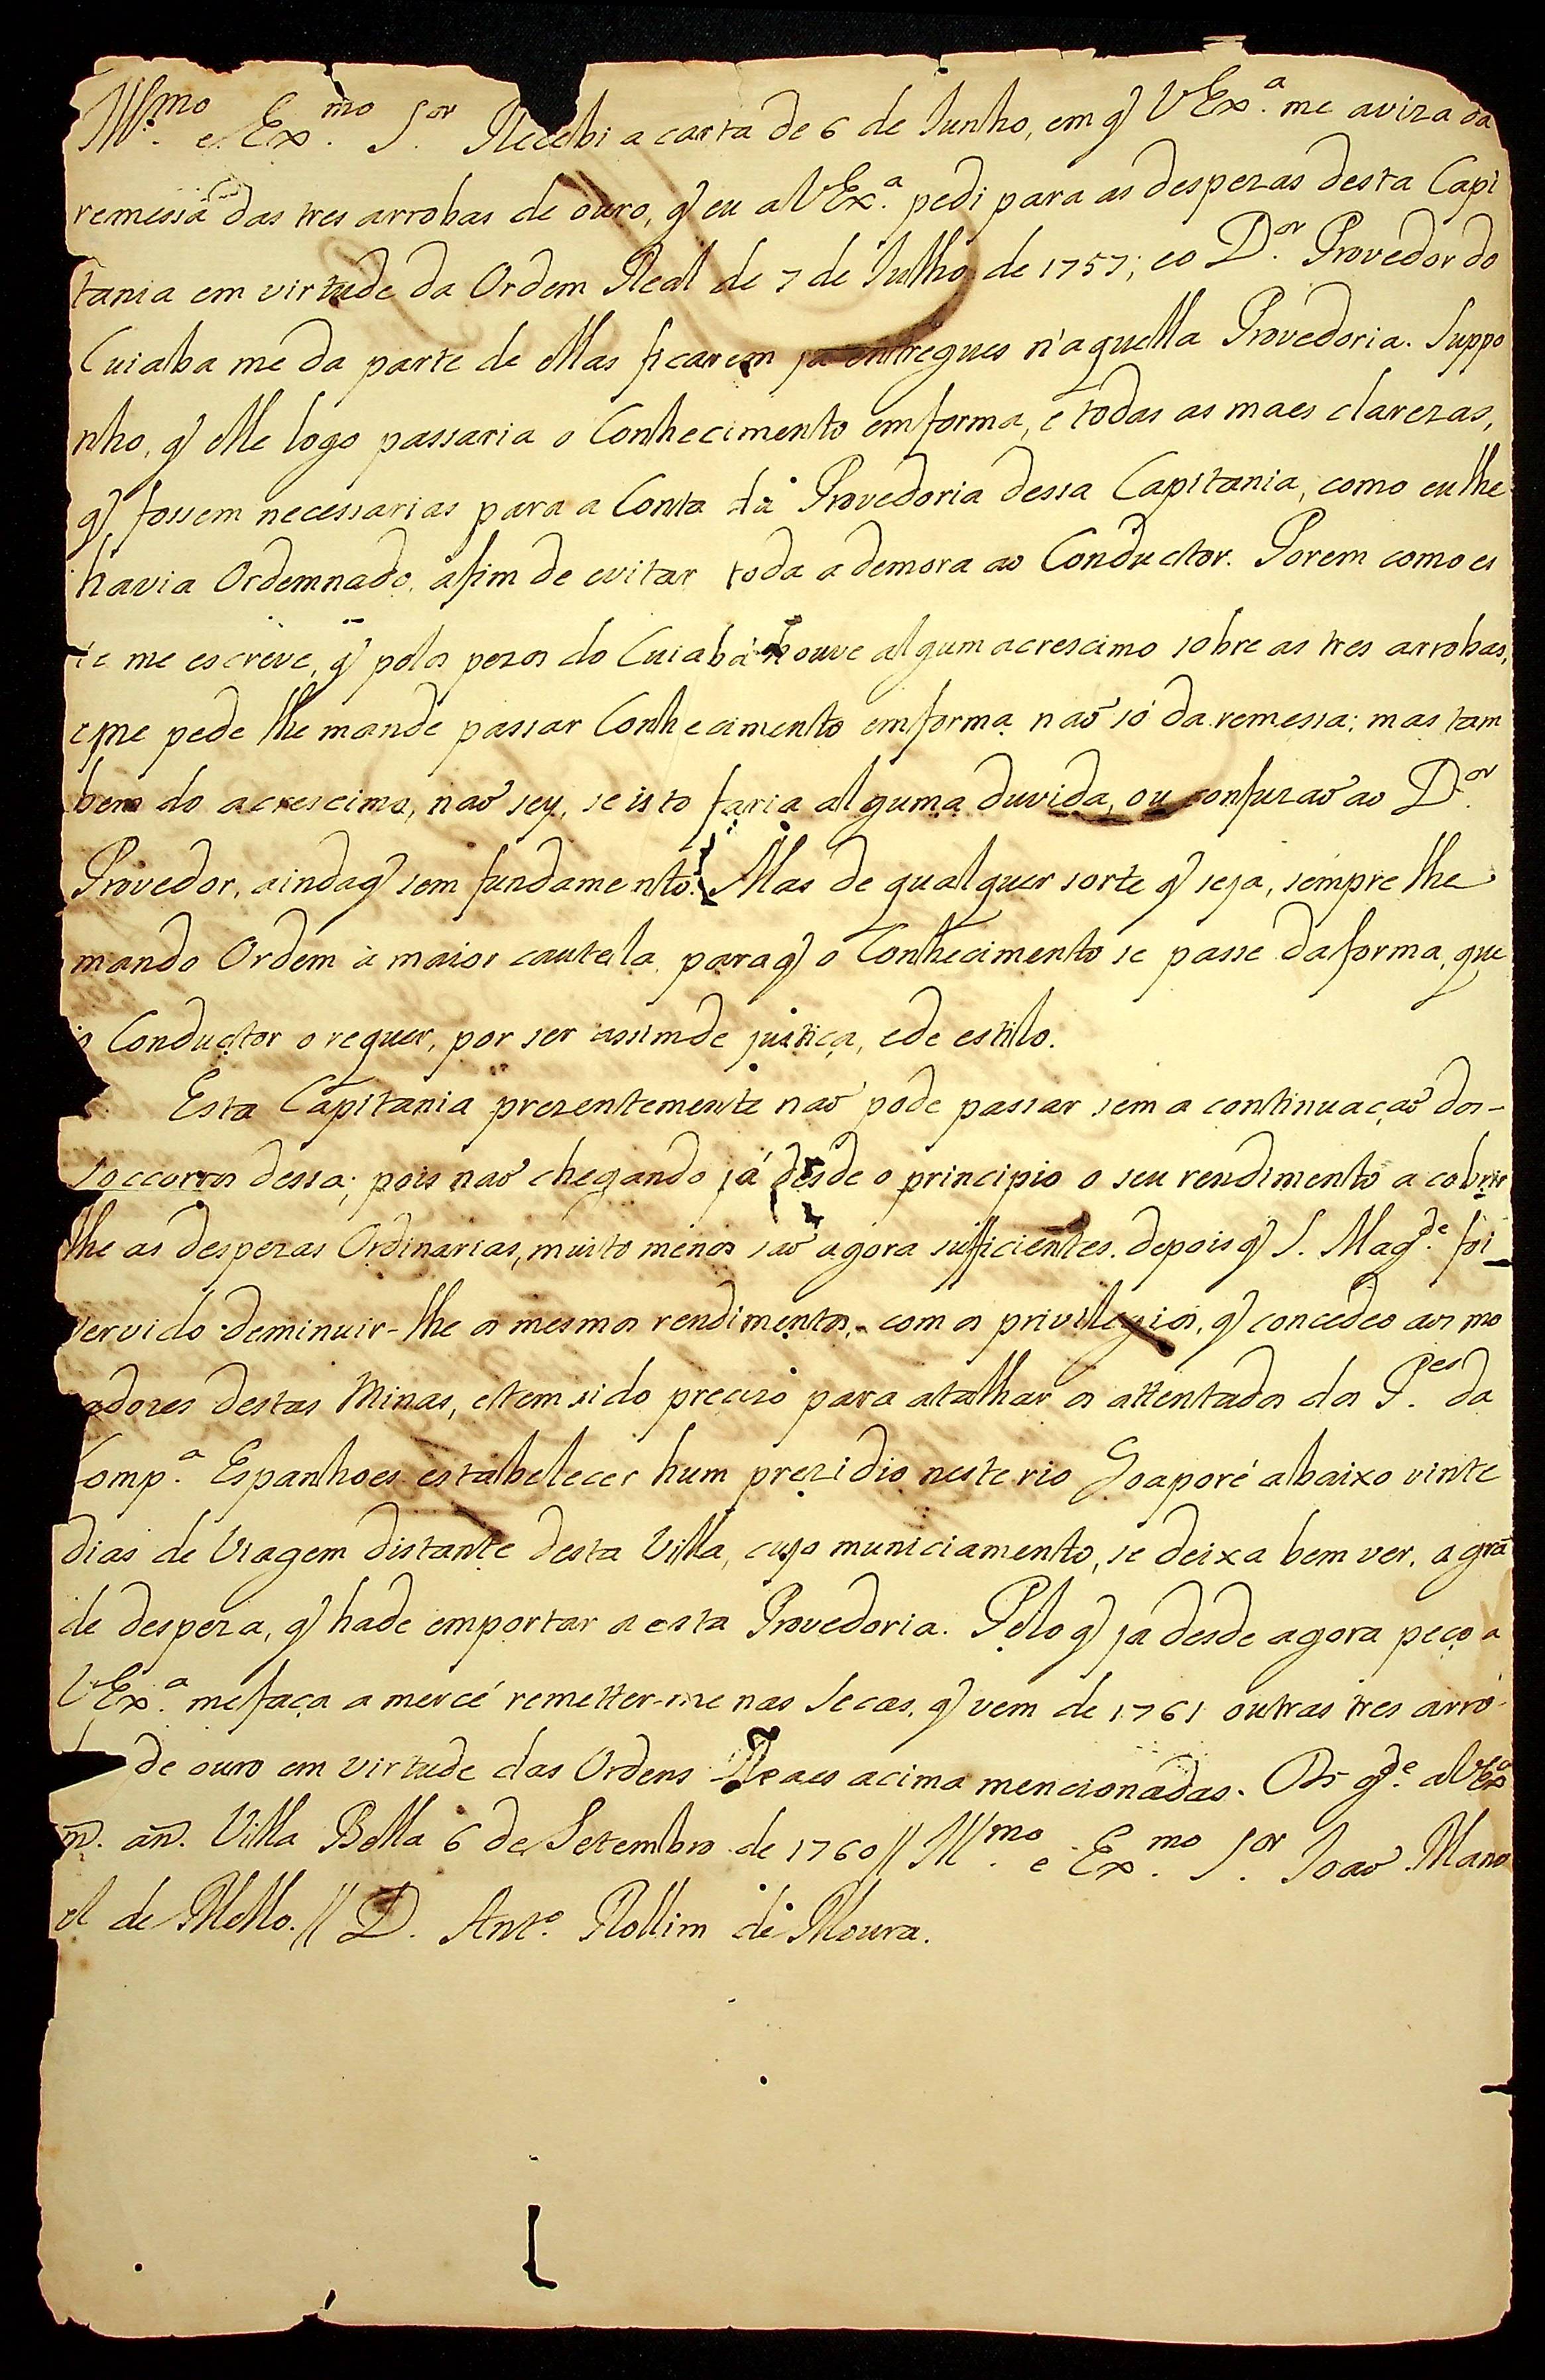 Ill.mo e Ex.mo S.or Recebi a carta de 6 de Junho, em q̃ VEx.a me aviza da
remessa das tres arrobas de ouro, q̃ eu a VEx.a pedi para as despezas desta Capi
tania em virtude da Ordem Real de 7 de Julho de 1757; eo D.or Provedor do
Cuiaba me da parte de ellas ficarem ja entregues n'aquella Provedoria. Suppo
nho, q̃ elle logo passaria o Conhecimento emforma, e todas as maes clarezas,
q̃ fossem necessarias para a Conta da Provedoria dessa Capitania, como eu lhe
havia Ordemnado, afim de evitar toda a demora ao Conductor. Porem como es
te me escreve, q̃ pelos pezos do Cuiabá houve algum acrescimo sobre as tres arrobas,
e me pede lhe mande passar Conhecimento emforma naõ só da remessa; mas tam
bem do acrescimo, naõ sey, se isto faria alguma duvida, ou confuzaõ ao D.or
Provedor, aindaq̃ sem fundamento. Mas de qualquer sorte q̃ seja, sempre lhe
mando Ordem à maior cautela paraq̃ o Conhecimento se passe daforma, que
o Conductor o requer, por ser assimde justiça, ede estilo.
Esta Capitania prezentemente naõ pode passar sem a continuaçaõ dos
soccorros dessa; pois naõ chegando já desde o principio o seu rendimento a cobrir
lhe as despezas Ordinarias, muito menos saõ agora sufficientes. depois q̃ S. Mag.de foi
servido deminuir-lhe os mesmos rendimentos, com os privilegios, q̃ concedeo aos mo
radores destas Minas, etem sido precizo para atalhar os attentados dos P.es da
Comp.a Espanhoes estabelecer hum prezidio neste rio Goaporé abaixo vinte
dias de Viagem distante desta Villa, cujo municiamento, se deixa bem ver, a grã
de despeza, q̃ hade emportar a esta Provedoria. Pelo q̃ ja desde agora peço a
VEx.a mefaça a mercé remetter-me nas Secas, q̃ vem de 1761 outras tres arro
de ouro em virtude das Ordens Reaes acima mencionadas. Ds g.de a VEx.a
m. an. Villa Bella 6 de Setembro de 1760 // Ill.mo e Ex.mo S.or Joaõ Mano
el de Mello. // D. Ant.o Rollim de Moura.